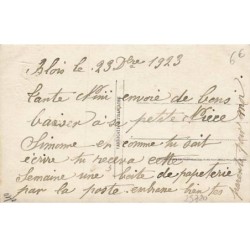 Blois le 23 Dbre 1923
Tante Nini envoie de bons
baiser à sa petite Nièce
Simone en comme tu sait
écrire tu recevra cette
Semaine une boite de papeterie
par la poste
66